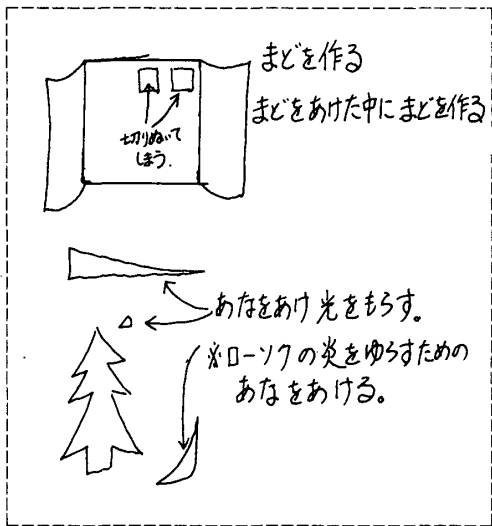 まどを作る
まどをあけた中にまどを作る
切りぬいて
しまう.
あなをあけ光をもらす。
※ローソクの炎をゆらすための
あなをあける。